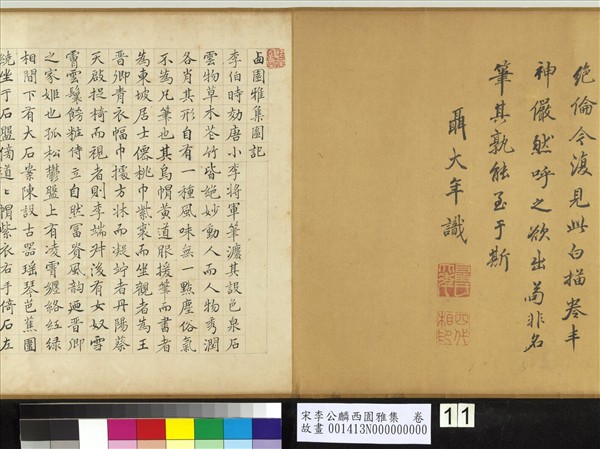 絶倫今復見此白描卷丰
神儼然呼之欲出苟非名
筆其孰能至于斯
聶大年識
西園雅集圖記
李伯時効唐小李將軍筆灋其設色泉石
雲物草木花竹皆絕妙動人而人物秀潤
各肖其形自有一種風味無一點塵俗氣
不為凡筆也其烏帽黃道服援筆而書者
為東坡居士僊桃巾紫裘而坐觀者為王
晉卿青衣幅巾據方牀而凝竚者丹陽蔡
天啟捉椅而視者則李端叔後有女奴雲
鬟翠飾粧侍立自然富貴風韵廼晉卿
之家姬也孤松鬱盤上有凌霄纏絡紅緑
相間下有大石案陳設古器瑤琴芭蕉圍
繞坐于石盤傍道帽紫衣右手倚石左
宋李公麟西園雅集 卷
故畫 001413N000000000
11